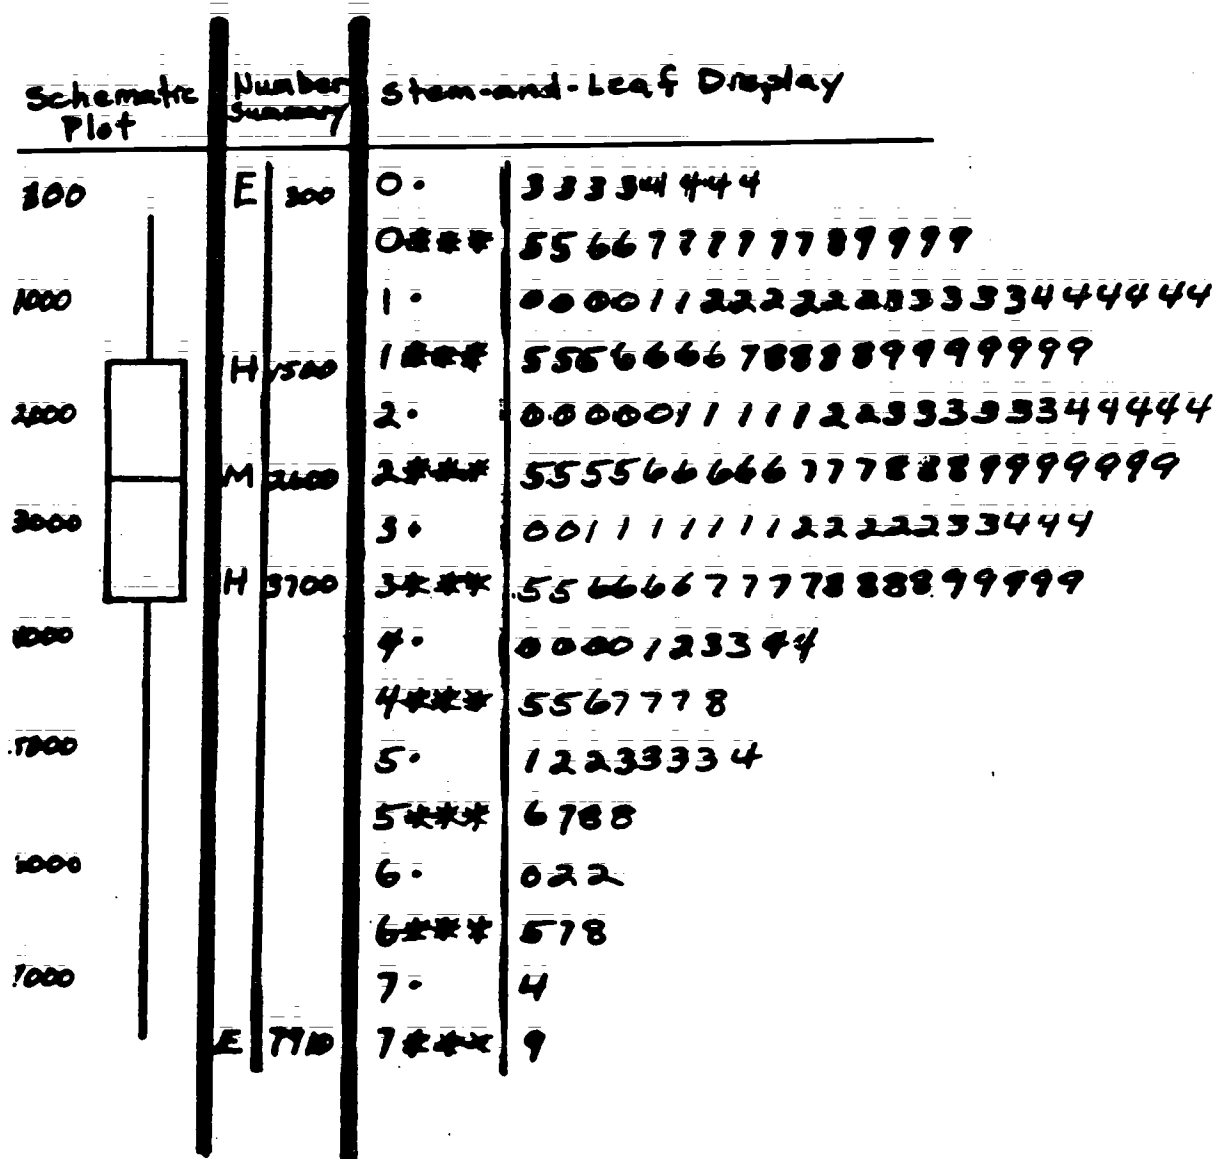 Schematic Plot | Number Summary | Stem-and-Leaf Display
E 300 0· 3 3 3 3 4 4 4 4 4
0*** 5 5 6 6 7 7 7 7 7 7 8 9 9 9 9
1000 1· 0 0 0 0 1 1 2 2 2 2 2 2 3 3 3 3 3 4 4 4 4 4 4
H 1500 1*** 5 5 6 6 6 6 6 7 8 8 8 8 9 9 9 9 9 9 9
2000 2· 0 0 0 0 0 1 1 1 1 1 2 2 3 3 3 3 3 3 4 4 4 4 4
M 2600 2*** 5 5 5 5 6 6 6 6 6 6 7 7 7 8 8 8 9 9 9 9 9 9 9
3000 3· 0 0 1 1 1 1 1 1 1 2 2 2 2 2 3 3 4 4 4
H 3700 3*** 5 5 6 6 6 6 7 7 7 7 8 8 8 8 9 9 9 9 9
4· 0 0 0 0 1 2 3 3 4 4
4*** 5 5 6 7 7 7 8
5· 1 2 2 3 3 3 3 4
5*** 6 7 8 8
6· 0 2 2
6*** 5 7 8
7000 7· 4
E 7910 7*** 9